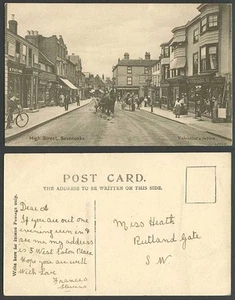 High Street, Sevenoaks.
POST CARD.
THE ADDRESS TO BE WRITTEN ON THIS SIDE.
Write here for Inland Postage only.
Dear A
If you are out one
evening run in &
see me my address
is 5 West Eaton Place
Hope you are well
With Love
Frances
Miss Heath
Rutland Gate
S W